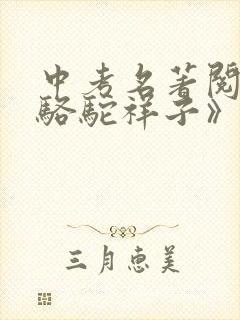 中考名著阅
骆驼祥子》
三月惠美